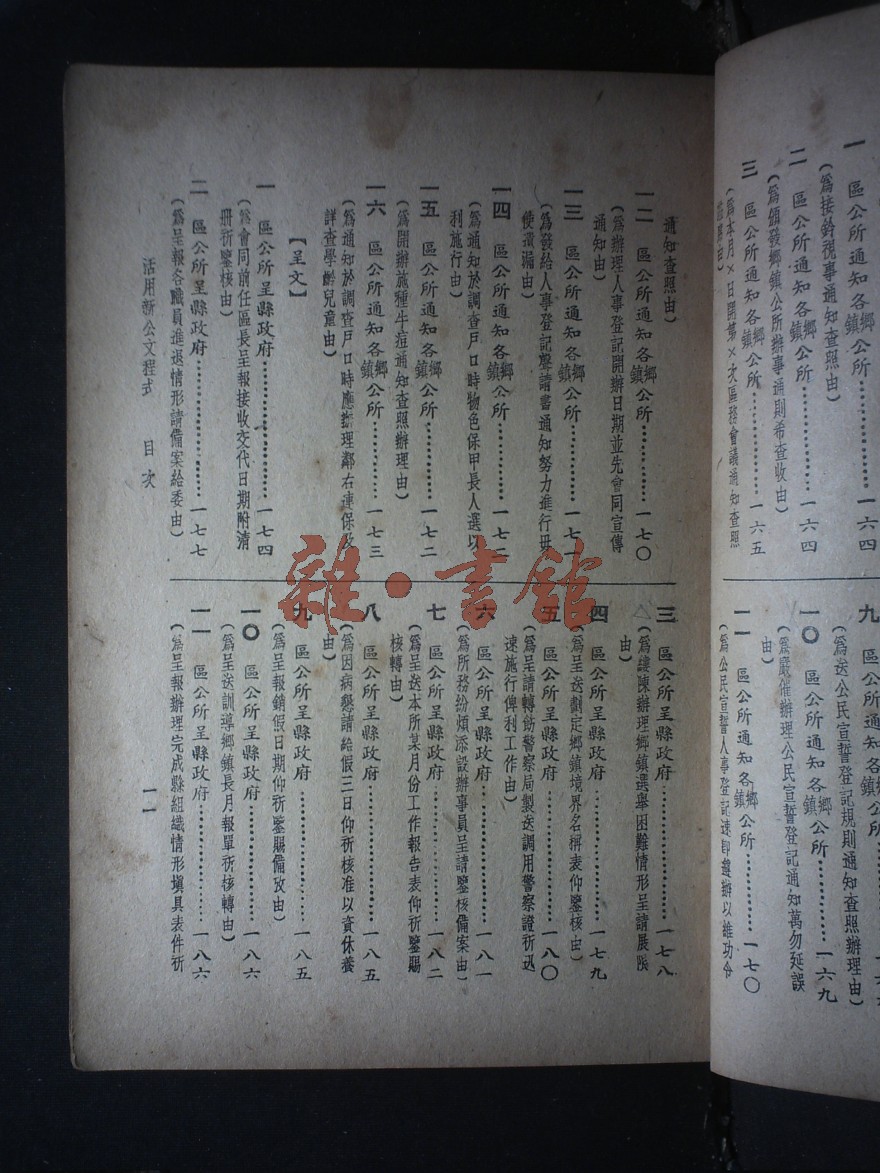 一 區公所通知各鄉鎮公所………一六四
(爲接鈐視事通知查照由)
二 區公所通知各鄉鎮公所………一六四
(爲頒發鄉鎮公所辦事通則希查收由)
三 區公所通知各鄉鎮公所………一六五
(爲本月×日開第×次區務會議通知查照
九 區公所通知各鄉鎮公所………一六九
(爲送公民宣誓登記規則通知查照辦理由)
一〇 區公所通知各鄉鎮公所………一六九
(爲嚴催辦理公民宣誓登記通知萬勿延誤
由)
一一 區公所通知各鄉鎮公所………一七〇
(爲公民宣誓人事登記速卽遵辦以維功令
通知查照由)
一二 區公所通知各鄉鎮公所………一七〇
(爲辦理人事登記開辦日期並先會同宣傳
通知由)
一三 區公所通知各鄉鎮公所………一七一
(爲發給人事登記聲請書通知努力進行毋
使遺漏由)
一四 區公所通知各鄉鎮公所………一七二
(爲通知於調查戶口時物色保甲長人選以
利施行由)
一五 區公所通知各鄉鎮公所………一七二
(爲開辦施種牛痘通知查照辦理由)
一六 區公所通知各鄉鎮公所………一七三
(爲通知於調查戶口時應辦理鄰右連保及
詳查學齡兒童由)
【呈文】
一 區公所呈縣政府………一七四
(爲會同前任區長呈報接收交代日期附清
册祈鑒核由)
二 區公所呈縣政府………一七七
(爲呈報各職員進退情形請備案給委由)
三 區公所呈縣政府………一七八
(爲縷陳辦理鄉鎮選舉困難情形呈請展限
由)
四 區公所呈縣政府………一七九
(爲呈送劃定鄉鎮境界名稱表仰鑒核由)
五 區公所呈縣政府………一八〇
(爲呈請轉飭警察局製送調用警察證祈迅
速施行俾利工作由)
六 區公所呈縣政府………一八一
(爲所務紛煩添設辦事員呈請鑒核備案由)
七 區公所呈縣政府………一八二
(爲呈送本所某月份工作報告表仰祈鑒賜
核轉由)
八 區公所呈縣政府………一八五
(爲因病懇請給假三日仰祈核准以資休養
由)
九 區公所呈縣政府………一八五
(爲呈報銷假日期仰祈鑒賜備攷由)
一〇 區公所呈縣政府………一八六
(爲呈送訓導鄉鎮長月報單祈核轉由)
一一 區公所呈縣政府………一八六
(爲呈報辦理完成縣組織情形塡具表件祈
活用新公文程式 目次
一一
雜·書館